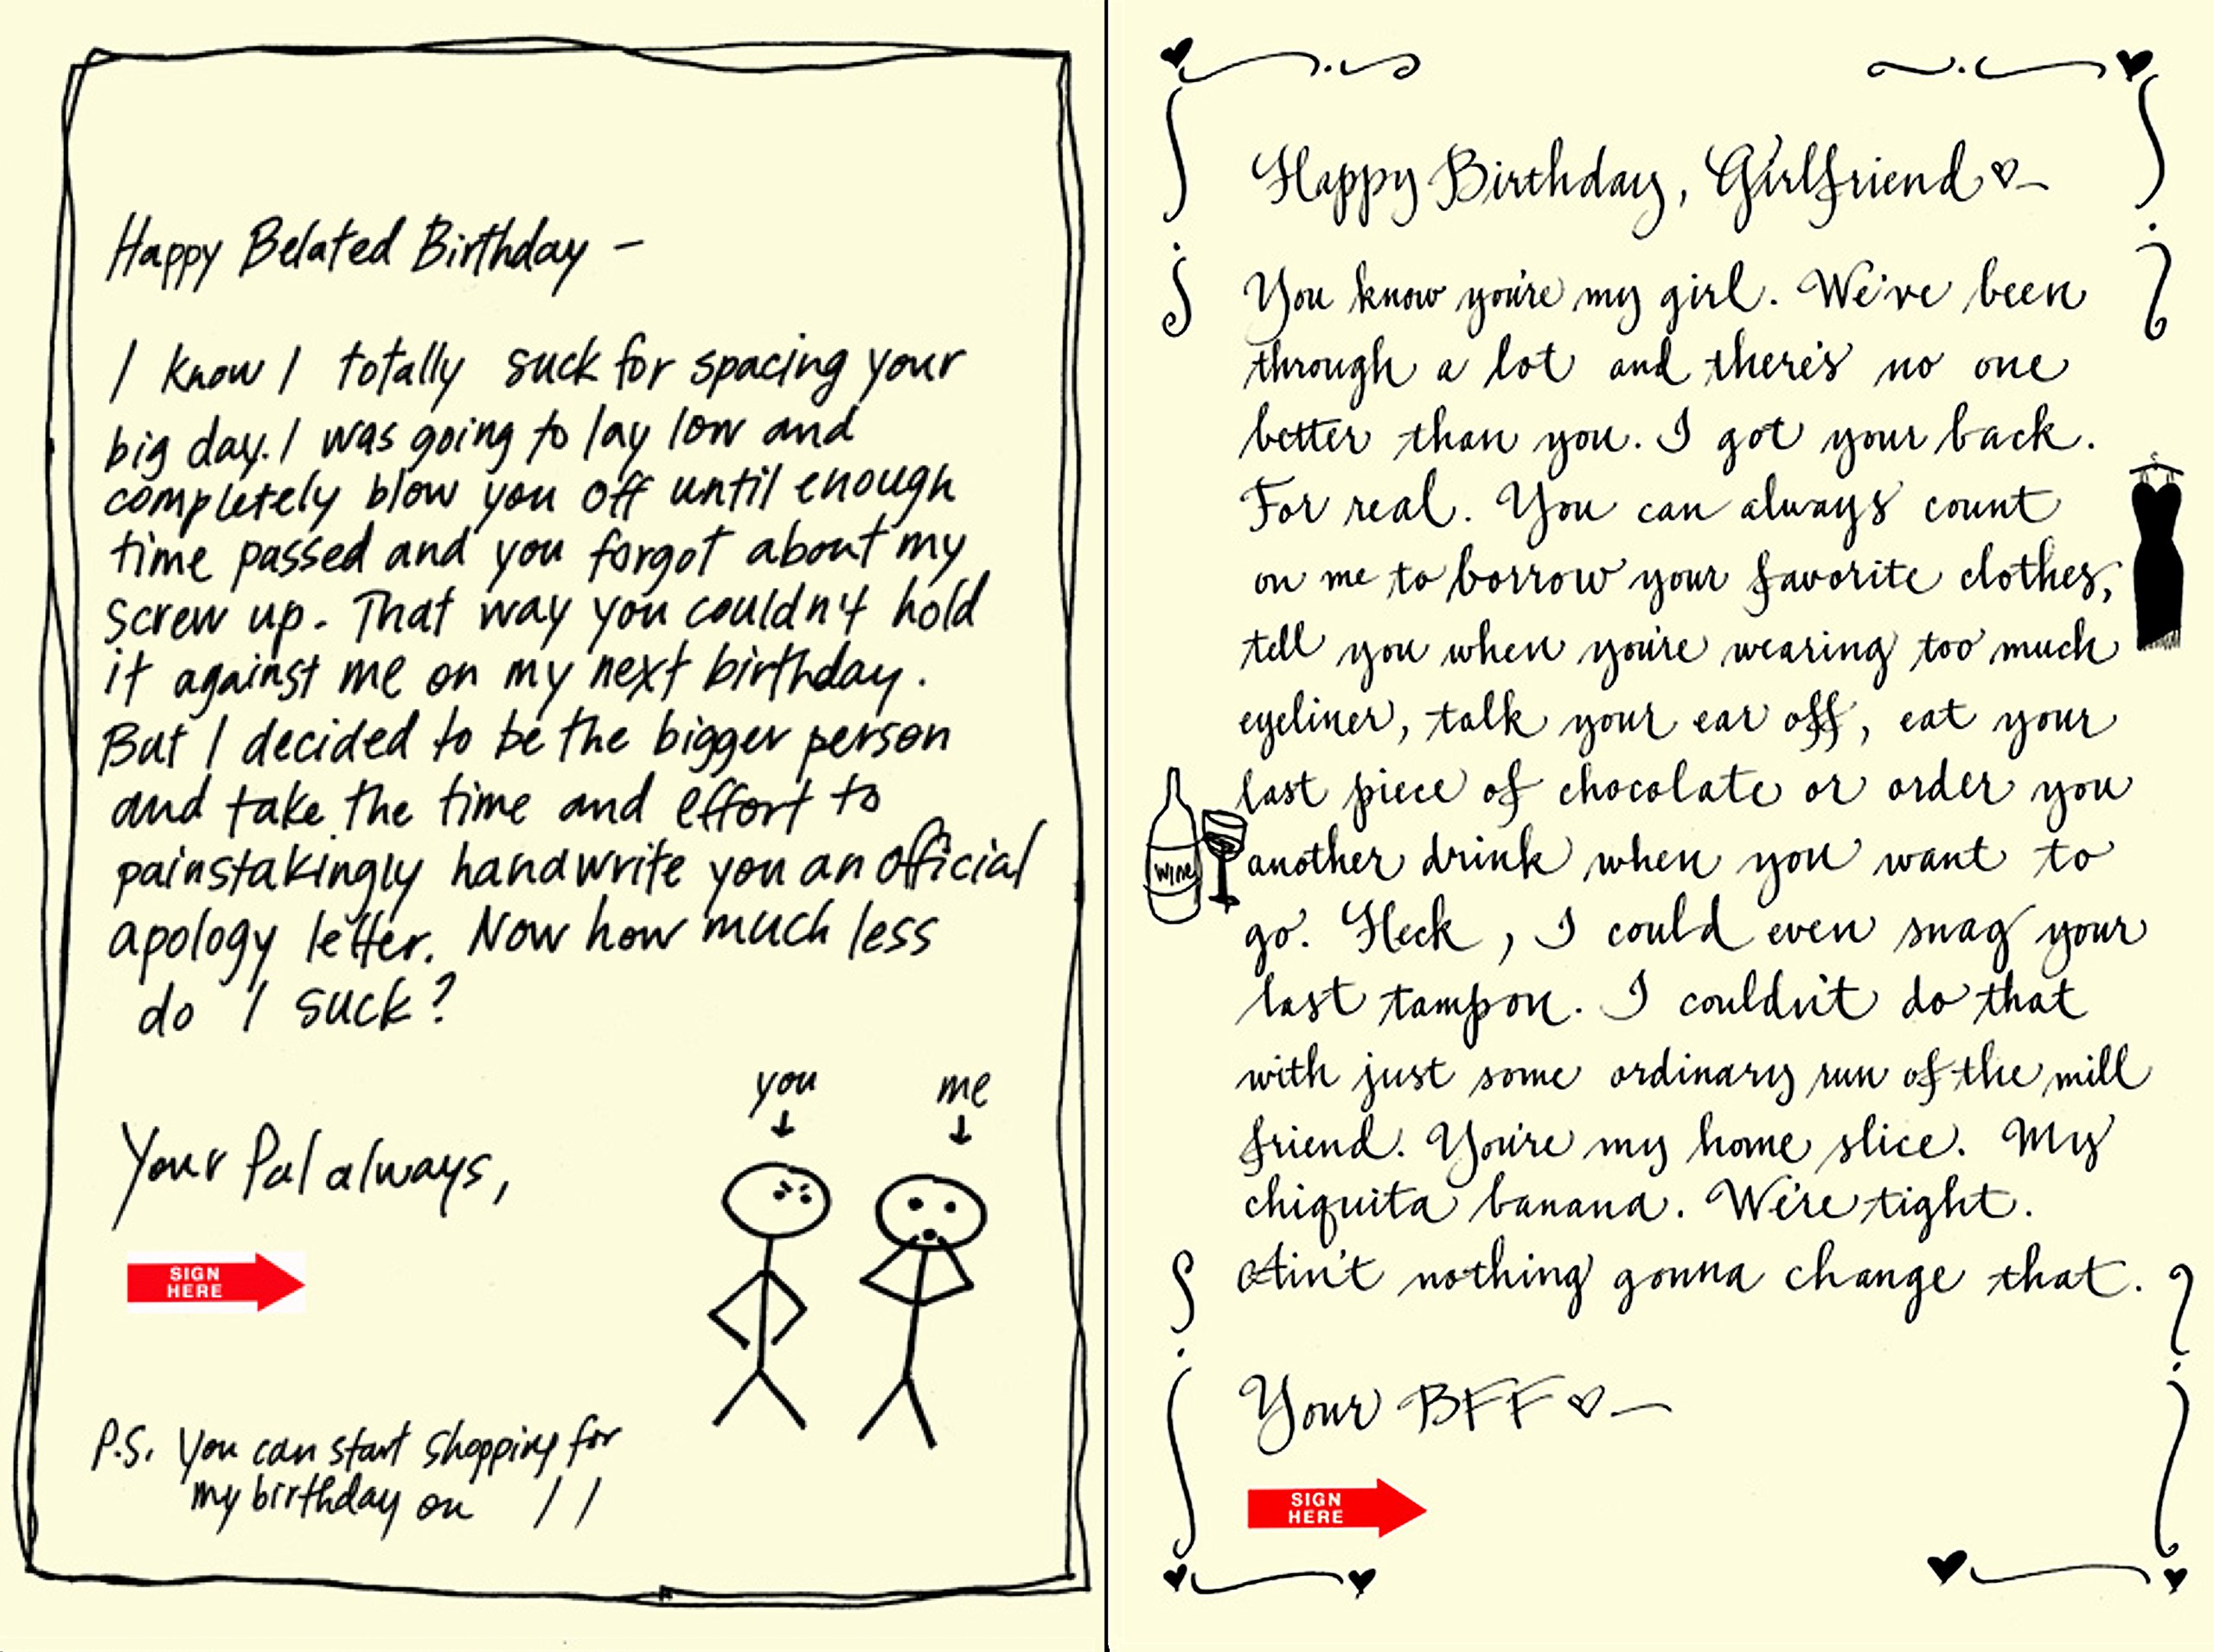 Happy Belated Birthday –
I know I totally suck for spacing your
big day. I was going to lay low and
completely blow you off until enough
time passed and you forgot about my
screw up. That way you couldn't hold
it against me on my next birthday.
But I decided to be the bigger person
and take the time and effort to
painstakingly handwrite you an official
apology letter. Now how much less
do I suck?
you me
Your Pal always,
SIGN
HERE
P.S. You can start shopping for
my birthday on / /
Happy Birthday, Girlfriend
You know you're my girl. We've been
through a lot and there's no one
better than you. I got your back.
For real. You can always count
on me to borrow your favorite clothes,
tell you when you're wearing too much
eyeliner, talk your ear off, eat your
last piece of chocolate or order you
another drink when you want to
WINE
go. Heck, I could even snag your
last tampon. I couldn't do that
with just some ordinary run of the mill
friend. You're my home slice. My
chiquita banana. We're tight.
Ain't nothing gonna change that.
Your BFF
SIGN
HERE